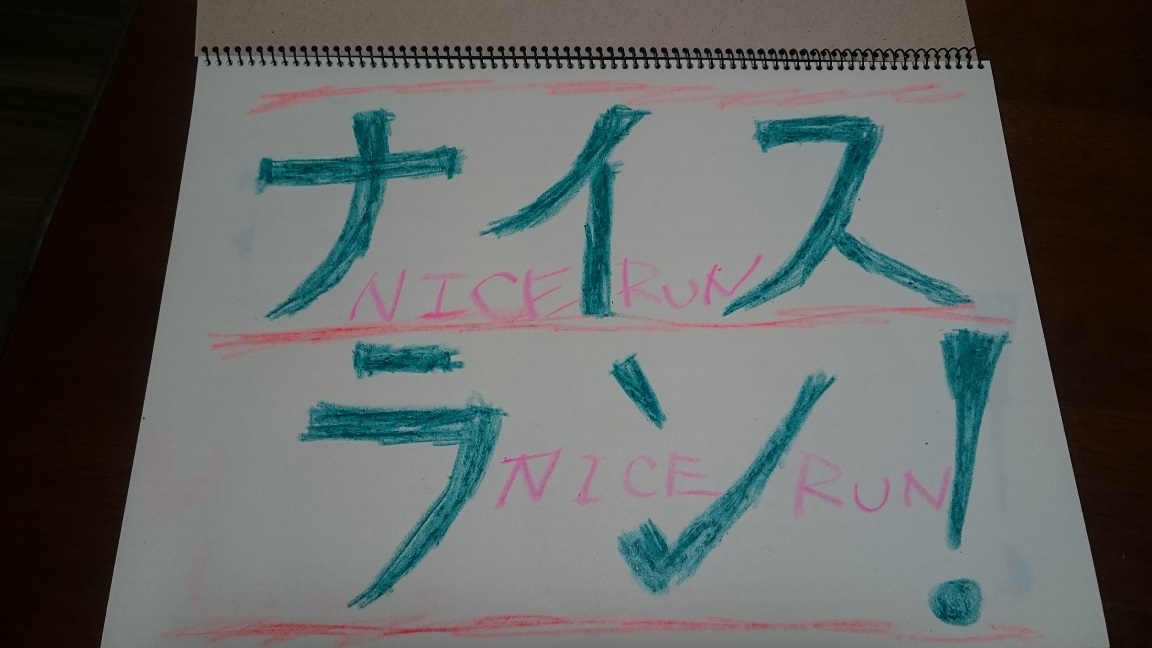 ナイス
NICE RUN
ラン!
NICE RUN